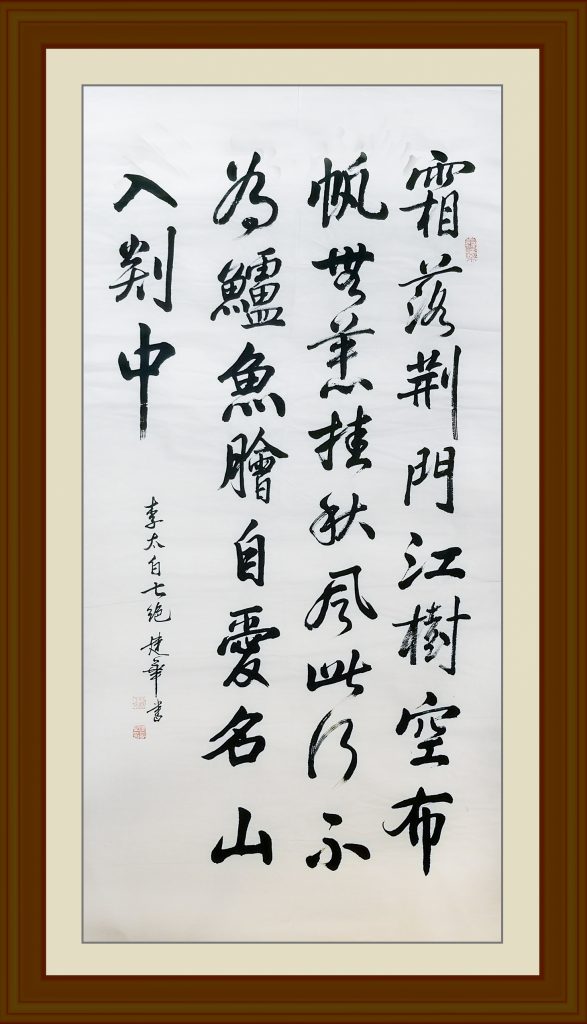 霜落荆門江樹空布
帆無恙挂秋風此行不
為鱸魚膾自愛名山
入剡中
李太白七絕 華書